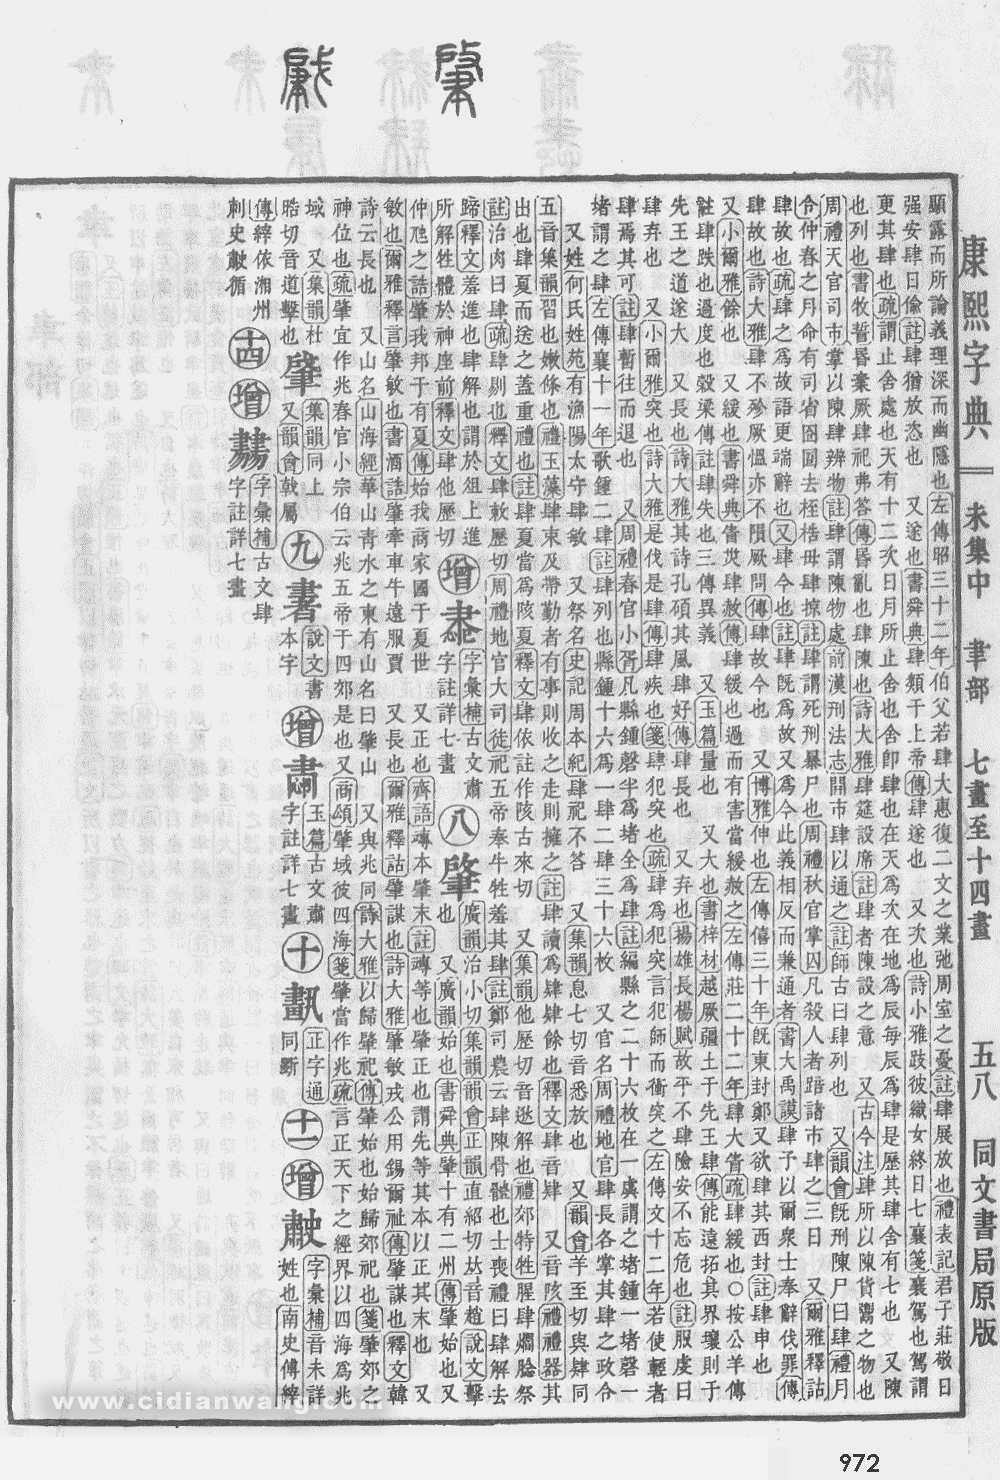 康熙字典 未集中 聿部 七畫至十四畫 五八 同文書局原版
顯露而所論義理深而幽隱也左傳昭三十二年伯父若肆大惠復二文之業弛周室之憂註肆展放也禮表記君子莊敬日
强安肆日偸註肆猶放恣也 又遂也書舜典肆類于上帝傳肆遂也 又次也詩小雅跂彼織女終日七襄箋襄駕也駕謂
更其肆也疏謂止舍處也天有十二次日月所止舍也舍卽肆也在天爲次在地爲辰每辰爲肆是歷其肆舍有七也 又陳
也列也書牧誓昬棄厥肆祀弗答傳昬亂也肆陳也詩大雅肆筵設席註肆者陳設之意 又古今注肆所以陳貨鬻之物也
周禮天官司市掌以陳肆辨物註肆謂陳物處前漢刑法志開市肆以通之註師古曰肆列也 又韻會旣刑陳尸曰肆禮月
令仲春之月命有司省囹圄去桎梏毋肆掠註肆謂死刑暴尸也周禮秋官掌囚凡殺人者踣諸市肆之三日 又爾雅釋詁
肆故也疏肆之爲故語更端辭也又肆今也註肆旣爲故又爲今此義相反而兼通者書大禹謨肆予以爾衆士奉辭伐罪傳
肆故也詩大雅肆不殄厥慍亦不隕厥問傳肆故今也 又博雅伸也左傳僖三十年旣東封鄭又欲肆其西封註肆申也
又小爾雅餘也 又緩也書舜典眚烖肆赦傳肆緩也過而有害當緩赦之左傳莊二十二年肆大眚疏肆緩也○按公羊傳
註肆跌也過度也榖梁傳註肆失也三傳異義 又玉篇量也 又大也書梓材越厥疆土于先王肆傳能遠拓其界壤則于
先王之道遂大 又長也詩大雅其詩孔碩其風肆好傳肆長也 又弃也揚雄長楊賦故平不肆險安不忘危也註服虔曰
肆弃也 又小爾雅突也詩大雅是伐是肆傳肆疾也箋肆犯突也疏肆爲犯突言犯師而衝突之左傳文十二年若使輕者
肆焉其可註肆暫往而退也 又周禮春官小胥凡縣鍾磬半爲堵全爲肆註編縣之二十六枚在一虡謂之堵鍾一堵磬一
堵謂之肆左傳襄十一年歌鍾二肆註肆列也縣鍾十六爲一肆二肆三十六枚 又官名周禮地官肆長各掌其肆之政令
又姓何氏姓苑有漁陽太守肆敏 又祭名史記周本紀肆祀不答 又集韻息七切音悉放也 又韻會羊至切與肄同
五音集韻習也嫩條也禮玉藻肆束及帶勤者有事則收之走則擁之註肆讀爲肄肄餘也釋文肆音肄 又音陔禮禮器其
出也肆夏而送之蓋重禮也註肆夏當爲陔夏釋文肆依註作陔古來切 又集韻他歷切音逖解也禮郊特牲腥肆爓腍祭
註治肉曰肆疏肆剔也釋文肆敕歷切周禮地官大司徒祀五帝奉牛牲羞其肆註鄭司農云肆陳骨體也士喪禮曰肆解去
蹄釋文羞進也肆解也謂於俎上進
所解牲體於神座前釋文肆他歷切 增𦘡 字彙補古文肅字註詳七畫 八 肇 廣韻治小切集韻韻會正韻直紹切𠀤音趙說文擊也 又廣韻始也書舜典肇十有二州傳肇始也又
仲虺之誥肇我邦于有夏傳始我商家國于夏世 又正也齊語竱本肇末註竱等也肇正也謂先等其本以正其末也 又
敏也爾雅釋言肇敏也書酒誥肇牽車牛遠服賈 又長也爾雅釋詁肇謀也詩大雅肇敏戎公用錫爾祉傳肇謀也釋文韓
詩云長也 又山名山海經華山靑水之東有山名曰肇山 又與兆同詩大雅以歸肇祀傳肇始也始歸郊祀也箋肇郊之
神位也疏肇宜作兆春官小宗伯云兆五帝于四郊是也又商頌肇域彼四海箋肇當作兆疏言正天下之經界以四海爲兆
域 又集韻杜晧切音道擊也 肈 集韻同上又韻會戟屬 九 𦘠 說文書本字 增 𦘣 玉篇古文肅字註詳七畫 十 𣃁 正字通同斷 十一 增 𪑓 字彙補音未詳姓也南史傅縡
傳縡依湘州刺史歗循 十四 增 𦘧 字彙補古文肆字註詳七畫
www.cidianwang.com
972